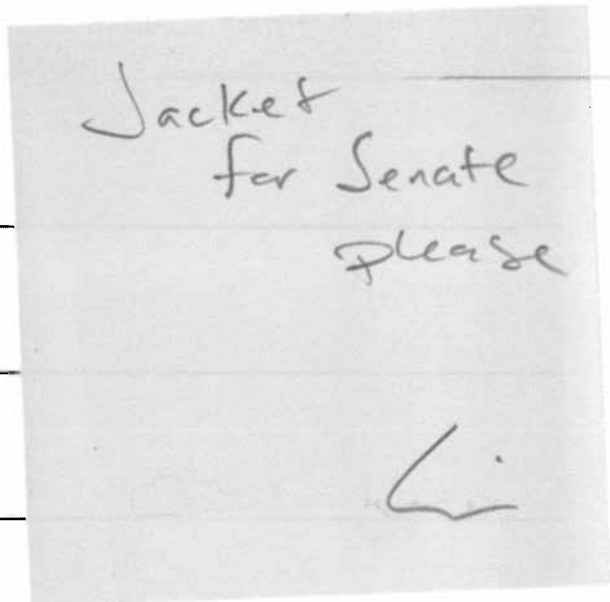 Jacket
for Senate
please